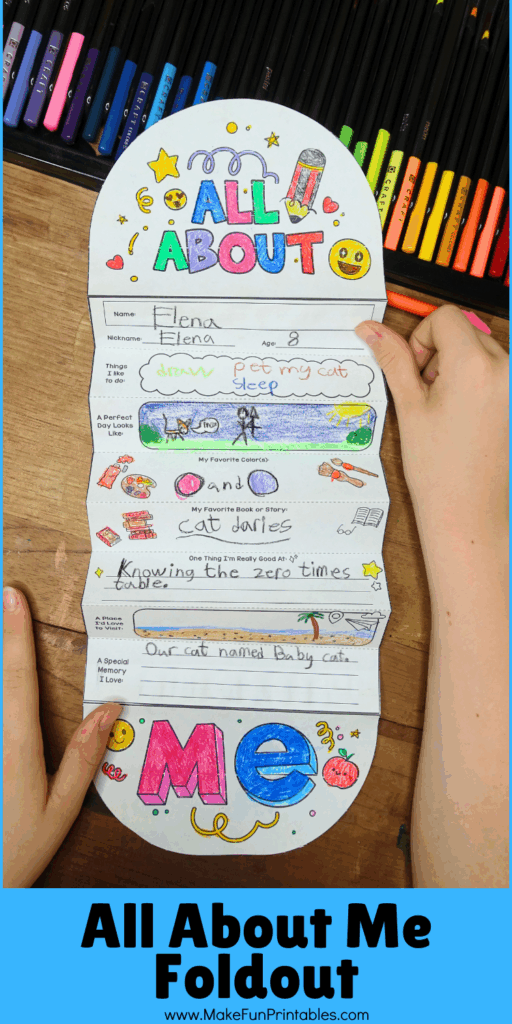 ALL
ABOUT
Name: Elena
Nickname: Elena Age: 8
Things I like to do: draw pet my cat
sleep
A Perfect Day Looks Like:
My Favorite Color(s):
and
My Favorite Book or Story:
cat daries
One Thing I'm Really Good At:
Knowing the zero times
table.
A Place I'd Love to Visit:
Our cat named Baby cat.
A Special
Memory
I Love:
Me
All About Me
Foldout
www.MakeFunPrintables.com